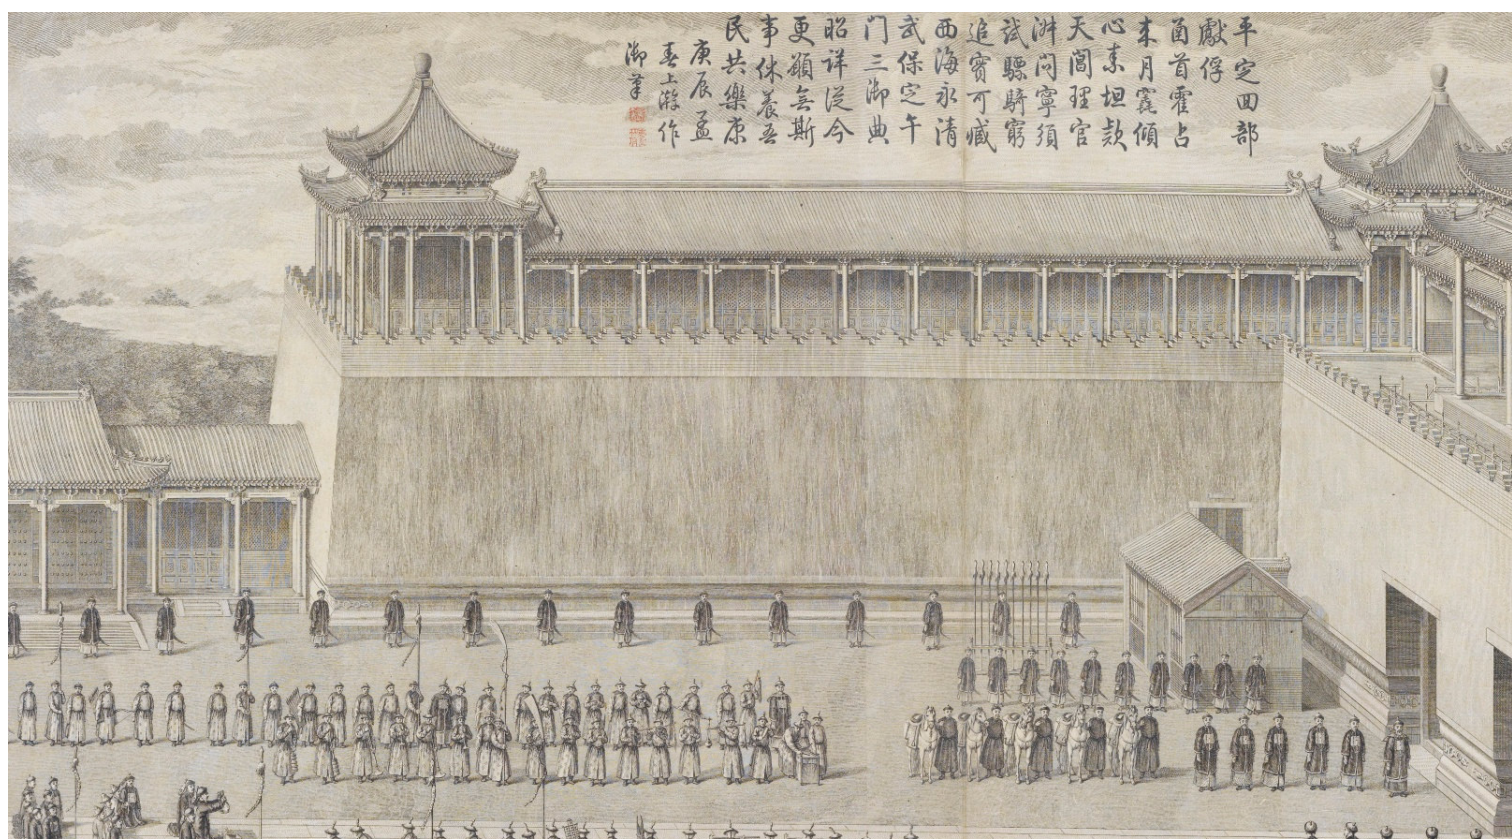 平定回部
獻俘
函首霍占
来月窟傾
心素坦款
天閶理官
淑问寧須
試驃騎窮
追實可臧
西海永清
武保定午
门三御典
昭詳從今
更願無斯
事休養吾
民共樂康
庚辰孟
春上澣作
御筆